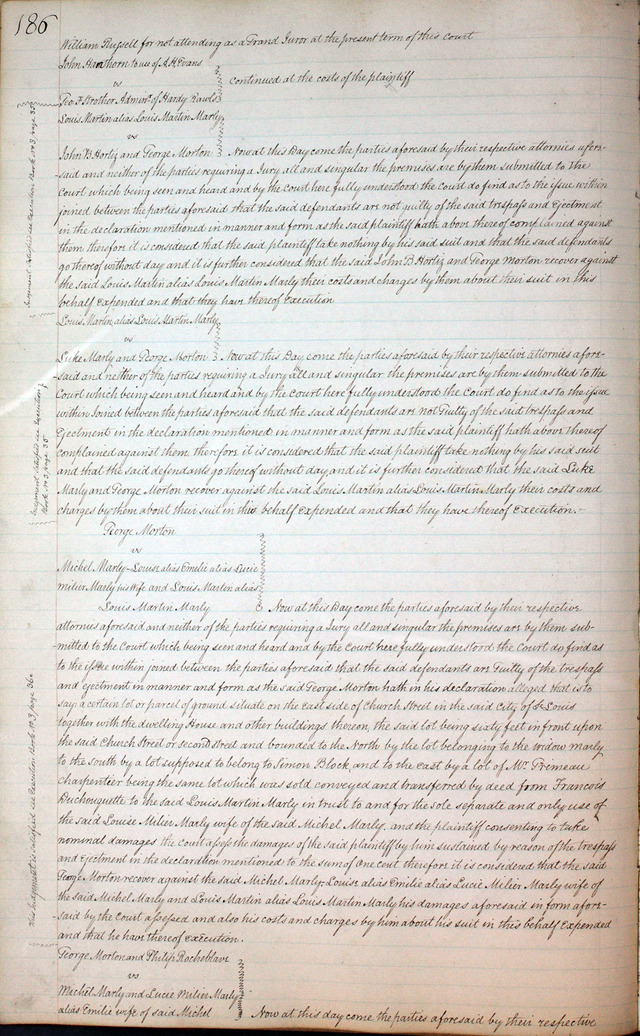 186
William Russell for not attending as a Grand Juror at the present term of this court
John Hawthorn to use of A.H. Evans
vs
continued at the costs of the plaintiff
Geo F Brother Admon. of Hardy Rawls
Louis Martin alias Louis Martin Marly
vs
John B Hortiz and George Morton Now at this Day come the parties aforesaid by their respective attornies afore-
said and neither of the parties requiring a Jury all and singular the premises are by them submitted to the
Court which being seen and heard and by the court here fully understood the court do find as to the issue within
joined between the parties aforesaid that the said defendants are not guilty of the said trespass and Ejectment
in the declaration mentioned in manner and form as the said plaintiff hath above thereof complained against
them therefore it is considered that the said plaintiff take nothing by his said suit and that the said defendants
go thereof without day and it is further considered that the said John B Hortiz and George Morton recover against
the said Louis Martin alias Louis Martin Marly their costs and charges by them about their suit in this
behalf Expended and that they have thereof execution
Louis Martin alias Louis Martin Marly
vs
Luke Marly and George Morton Now at this Day come the parties aforesaid by their respective attornies afore-
said and neither of the parties requiring a Jury all and singular the premises are by them submitted to the
Court which being seen and heard and by the court here fully understood the Court do find as to the issue
within Joined between the parties aforesaid that the said defendants are not Guilty of the said trespass and
Ejectment in the declaration mentioned in manner and form as the said plaintiff hath above thereof
complained against them, therefore it is considered that the said plaintiff take nothing by his said suit
and that the said defendants go thereof without day and it is further considered that the said Luke
Marly and George Morton recover against the said Louis Martin alias Louis Martin Marly their costs and
charges by them about their suit in this behalf Expended and that they have thereof Execution.-
George Morton
vs
Michel Marly-Louise alias Emilie alias Lucie
Milier Marly his wife and Louis Martin alias
Louis Martin Marly Now at this Day come the parties aforesaid by their respective
attornies aforesaid and neither of the parties requiring a Jury all and singular the premises are by them sub-
mitted to the Court which being seen and heard and by the Court here fully understood the Court do find as
to the issue within joined between the parties aforesaid that the said defendants are Guilty of the trespass
and ejectment in manner and form as the said George Morton hath in his declaration alleged that is to
say a certain lot or parcel of ground situate on the east side of Church Street in the said City of St Louis
together with the dwelling House and other buildings thereon, the said lot being sixty feet in front upon
the said Church Street or second street and bounded to the North by the lot belonging to the widow marly
to the south by a lot supposed to belong to Simon Block and to the East by a lot of Mr Primeau
Charpentier being the same lot which was sold conveyed and transferred by deed from Francois
Duchouquette to the said Louis Martin Marly in trust to and for the sole separate and only use of
the said Louise Milier Marly wife of the said Michel Marly, and the plaintiff consenting to take
nominal damages the court assess the damages of the said plaintiff by him sustained by reason of the trespass
and Ejectment in the declaration mentioned to the sum of One cent therefore it is considered that the said
George Morton recover against the said Michel Marly Louise alias Emilie alias Lucie Milier Marly wife of
the said Michel Marly and Louis Martin alias Louis Martin Marly his damages aforesaid in form afore-
said by the Court assessed and also his costs and charges by him about his suit in this behalf Expended
and that he have thereof execution.
George Morton and Philip Rocheblave
vs
Michel Marly and Lucie Milier Marly
alias Emilie wife of said Michel Now at this day come the parties aforesaid by their respective
Judgment satisfied see Execution Book No 3, page 35
Judgment satisfied see Execution
Book No 3, page 35
this Judgment is satisfied see Execution Book No 3, page 36